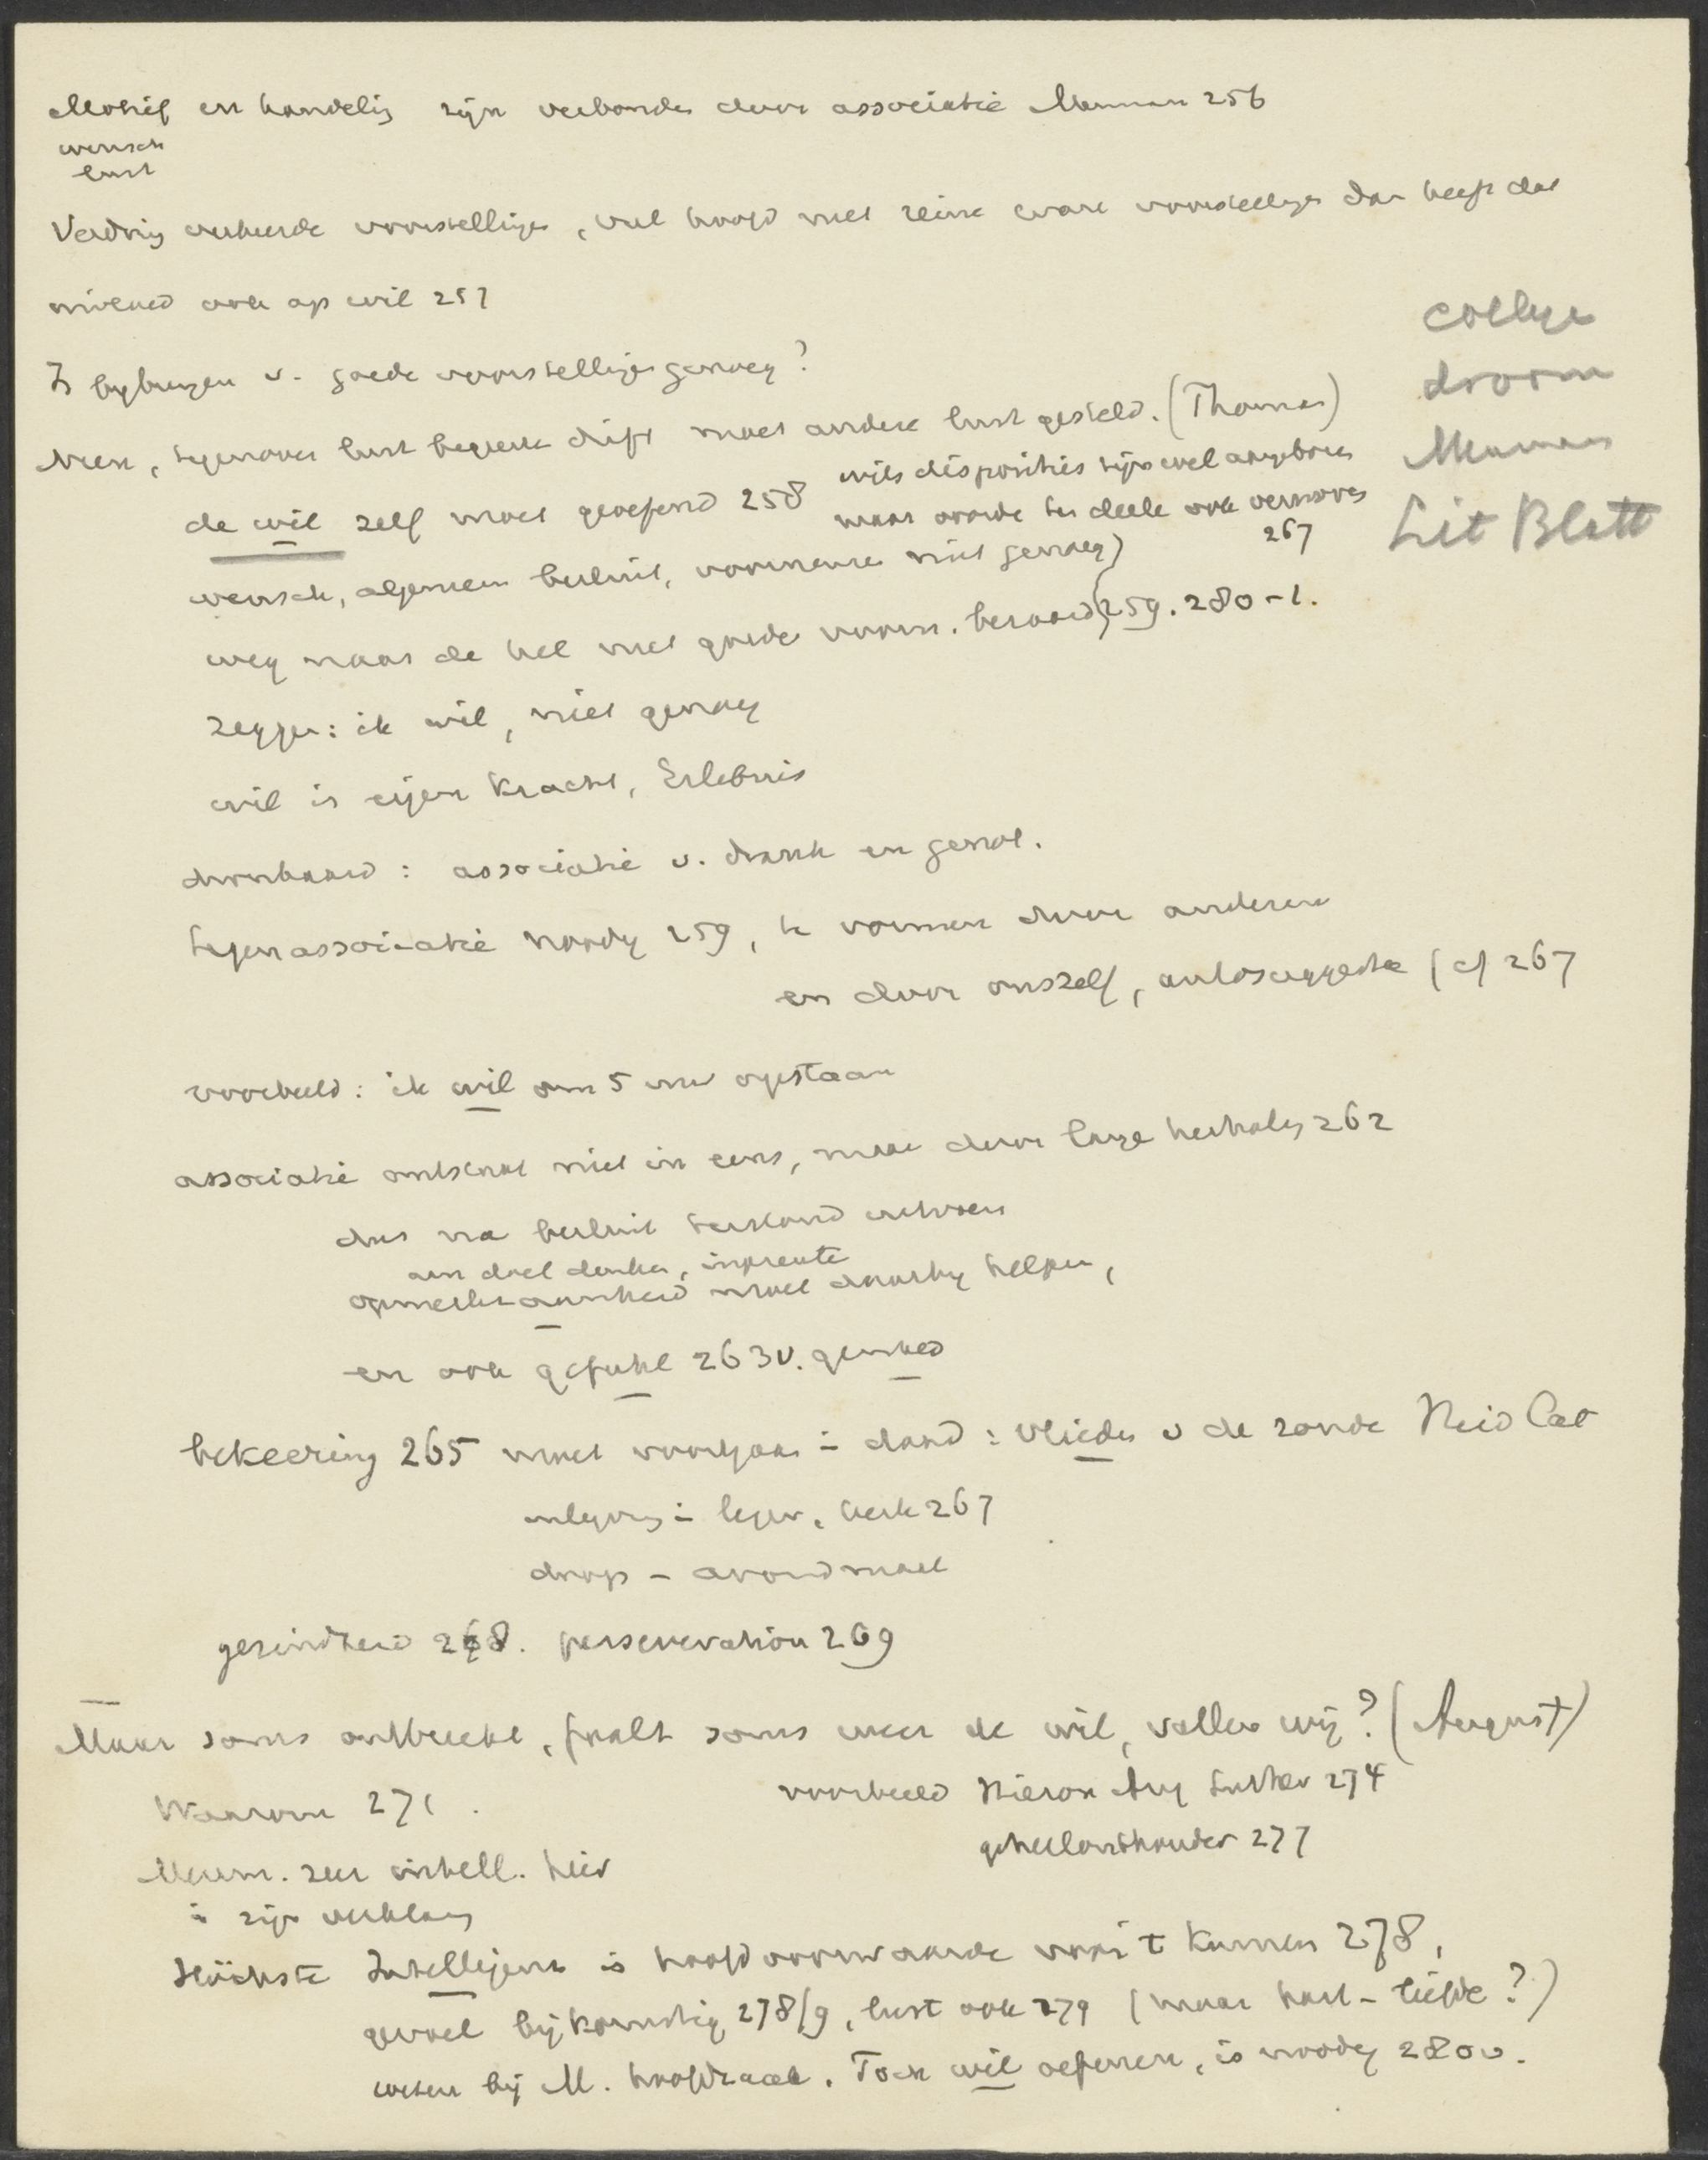 Motief en handelig zijn verbonden door associatie Meuman 256
wensch
lust
Verdrijf verkeerde voorstellingen, vul hoofd met reine ware voorstellingen dan heeft dat
invloed ook op wil 257
Is bijbrengen v. goede voorstellingen genoeg?
Neen, tegenover lust begeerte drift moet andere lust gesteld. (Thomas)
de wil zelf moet geoefend 258
wils disposities zijn wel aangeboren
maar worden ten deele ook verworven
267
wensch, algemeen besluit, voornemen niet genoeg)
weg naar de hel met goede voorn. bevloerd 259. 280-1.
zeggen: ik wil, niet genoeg
wil is eigen Kracht, Erlebnis
dronkaard: associatie v. drank en genot.
tegenassociatie noodig 259, te vormen door anderen
en door onszelf, autosuggestie (cf 267
voorbeeld: ik wil om 5 uur opstaan
associatie ontstaat niet in eens, maar door lange herhaling 262
dus na besluit terstond uitvoeren
aan doel denken, inprenten
opmerkzaamheid moet daarbij helpen,
en ook gefuhl 263 v.
bekeering 265 moet voortgaan in daad: vlieden v de zonde Heid Cat
in leger, kerk 267
doop - avondmaal
gezindheid 268. perseveration 269
Maar soms ontbreekt, faalt soms weer de wil, vallen wij? (August)
Waarom 271.
voorbeeld Hieron Aug Luther 274
geheelonthouder 277
Meum. zeer intell. hier
in zijn verklaring
Höchste Intelligenz is hoofdvoorwaarde voor 't Kunnen 278,
gevoel bijkomstig 278/9, lust ook 279 (maar hart - liefde?)
weten bij M. hoofdzaak. Toch wil oefenen, is noodig 280 v.
college
droom
Meuman
Lit Blatt